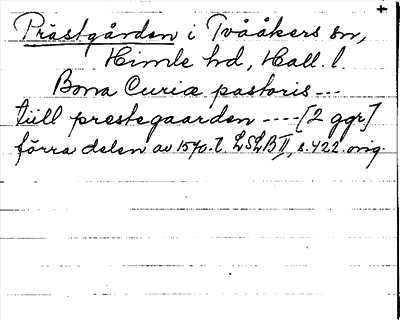 +
Prästgården i Tvååkers sn,
Himle hd, Hall. l.
Bona Curiæ pastoris ---
tiill prestegaarden ---- [2 ggr]
förra delen av 1570-t. LSLB II, s. 422. orig.